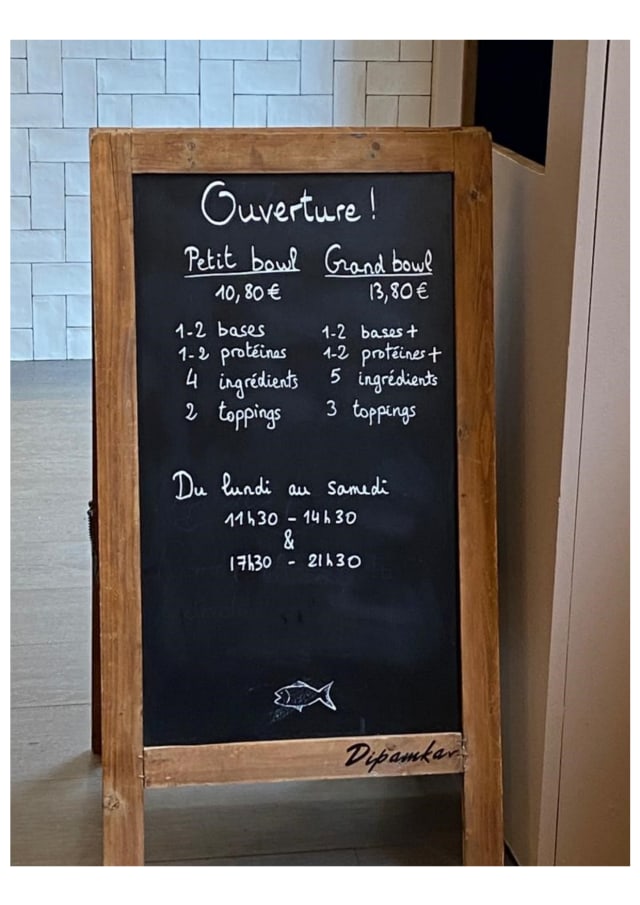 Ouverture !
Petit bowl Grand bowl
10,80 € 13,80 €
1-2 bases 1-2 bases +
1-2 protéines 1-2 protéines +
4 ingrédients 5 ingrédients
2 toppings 3 toppings
Du lundi au samedi
11h30 - 14h30
&
17h30 - 21h30
Dipamkar